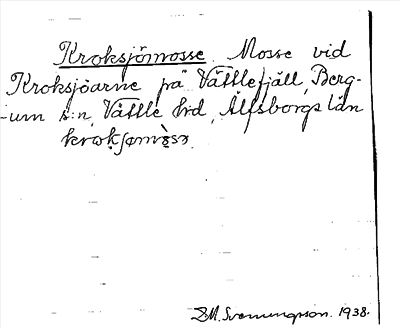 Kroksjömosse. Mosse vid
Kroksjöarne på Vättlefjäll, Berg-
um s:n, Vättle hd, Älfsborgs län
M. Svenungsson. 1938.